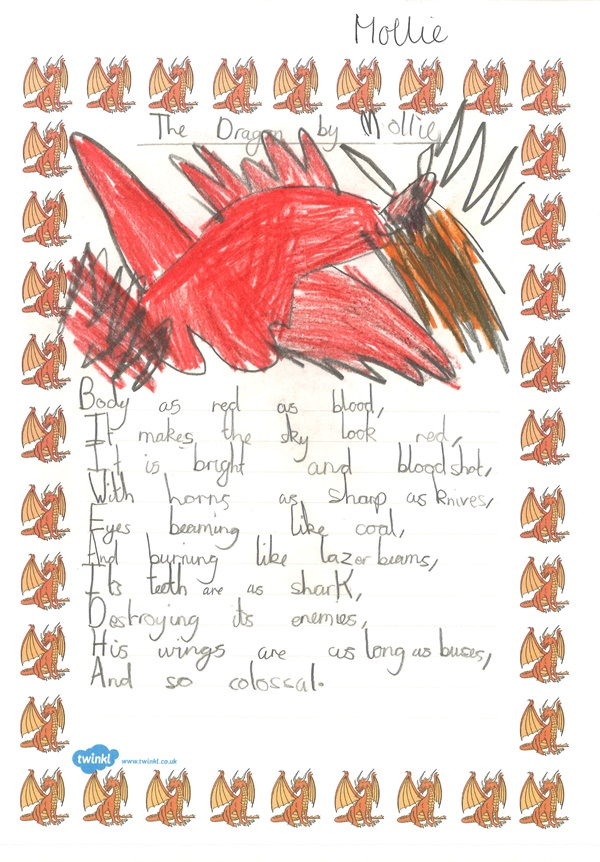 Mollie
The Dragon by Mollie
Body as red as blood,
It makes the sky look red,
It is bright and bloodshot,
With horns as sharp as knives,
Eyes beaming like coal,
And burning like lazer beams,
Its teeth are as sharK,
Destroying its enemies,
His wings are as long as buses,
And so colossal.
twinkl www.twinkl.co.uk